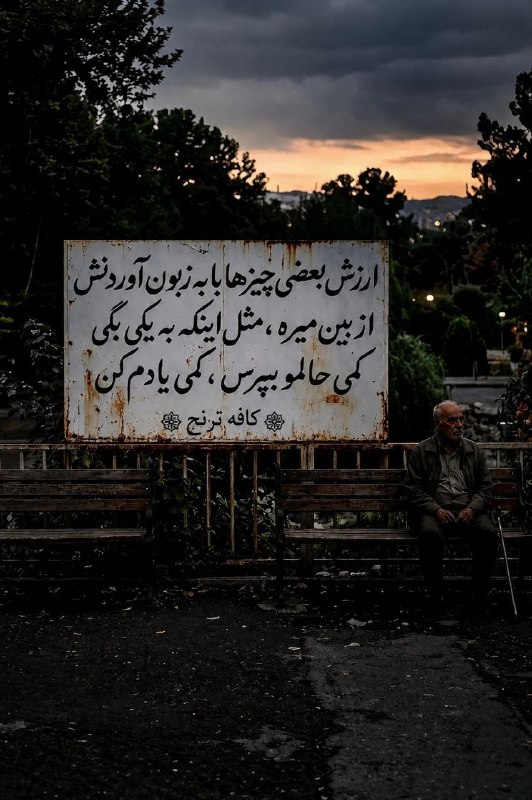 ارزش بعضی چیزها با به زبون آوردنش
از بین میره ، مثل اینکه به یکی بگی
کمی حالمو بپرس ، کمی یادم کن
کافه ترنج